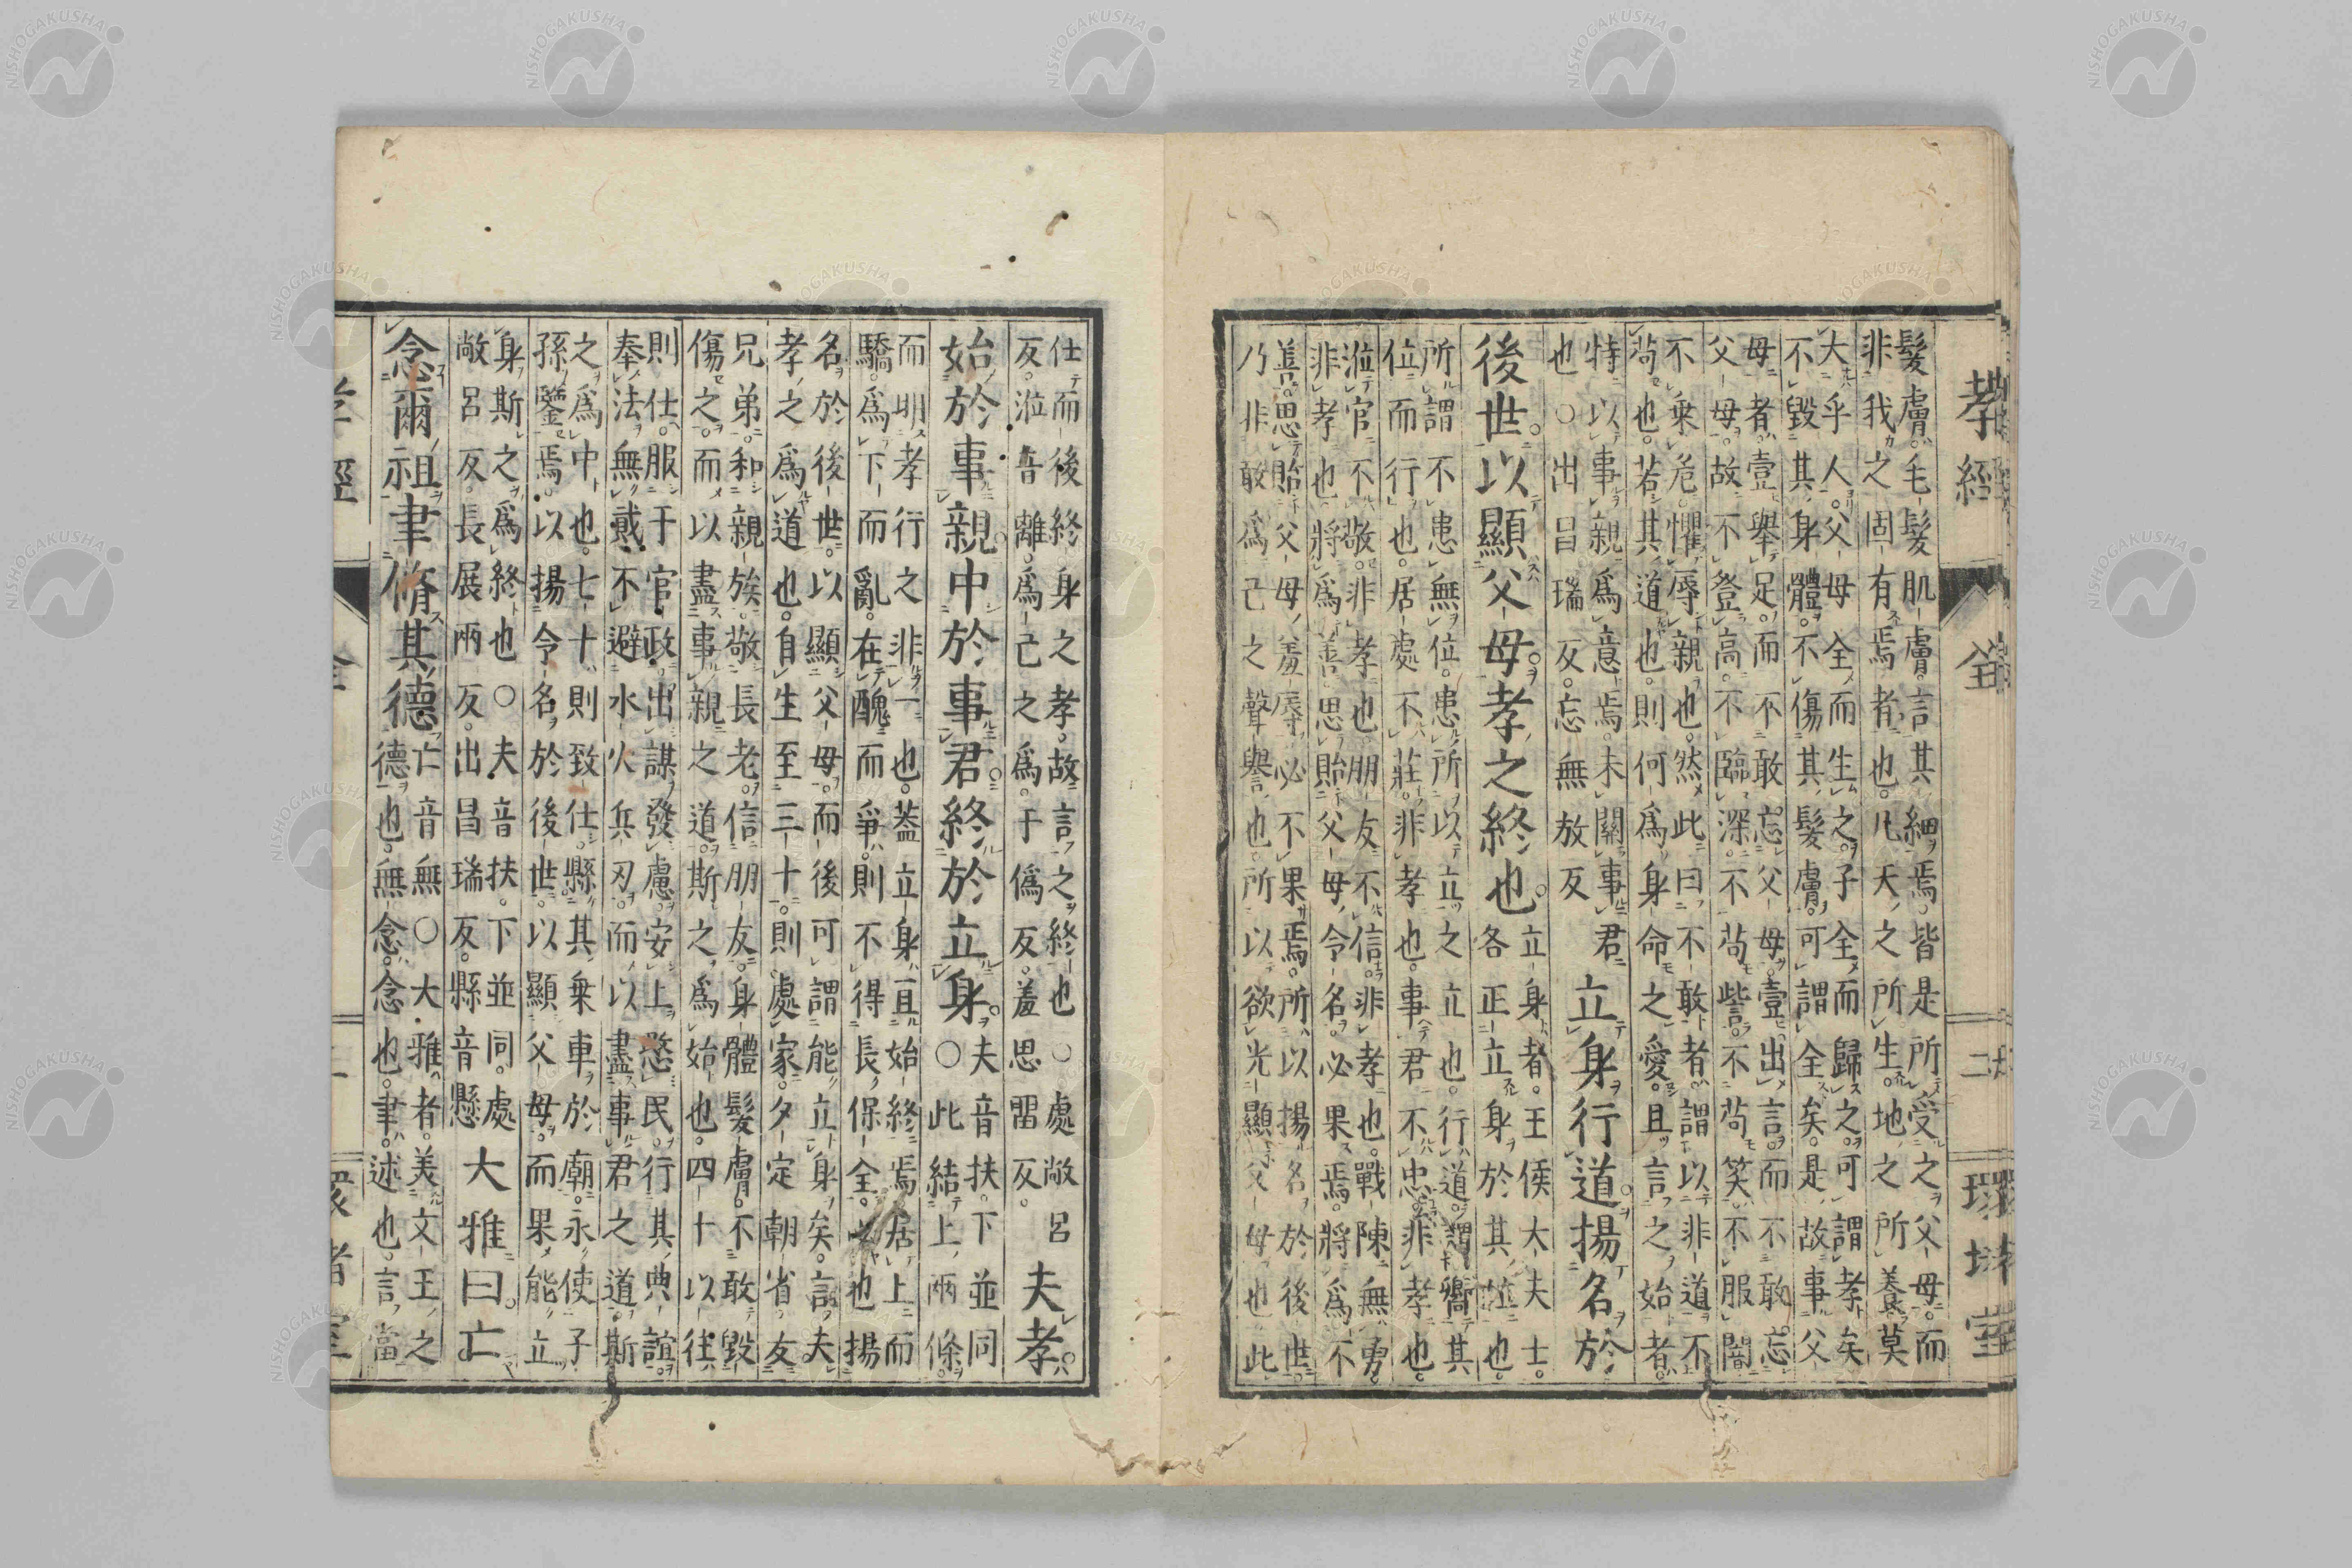 孝經 全 二 環堵室
髮膚毛髮肌膚言其細焉皆是所受之父母而
非我之固有焉者也凡天之所生地之所養莫
大乎人父母全而生之子全而歸之可謂孝矣
不毀其身體不傷其髮膚可謂全矣是故事父
母者壹舉足而不敢忘父母壹出言而不敢忘
父母故不登高不臨深不苟訾不苟笑不服闇
不乗危懼辱親也然此曰不敢者謂以非道不
苟也若其道也則何爲身命之愛且言之始者
特以事親爲意焉未關事君
也○出呂瑞反忘無放反
立身行道揚名於
後世以顯父母孝之終也
立身者王侯大夫士
各正立身於其位也
所謂不患無位患所以立之立也行道謂嚮其
位而行也居處不莊非孝也事君不忠非孝也
涖官不敬非孝也朋友不信非孝也戰陳無勇
非孝也將爲善思貽父母令名必果焉將爲不
善思貽父母羞辱必不果焉所以揚名於後世
乃非敢爲己之聲譽也所以欲光顯父母也此
仕而後終身之孝故言之終也○處敞呂
反涖音離爲己之爲于僞反羞思畱反
夫孝
始於事親中於事君終於立身
夫音扶下並同
○此結上兩條
而明孝行之非一也蓋立身且始終焉居上而
驕爲下而亂在醜而爭則不得長保全也揚
名於後世以顯父母而後可謂能立身矣言夫
孝之爲道也自生至三十則處家夕定朝省友
兄弟和親族敬長老信朋友身體髮膚不敢毀
傷之而以盡事親之道斯之爲始也四十以往
則仕服于官政出謀發慮安上慜民行其典誼
奉法無貳不避水火兵刃而以盡事君之道斯
之爲中也七十則致仕縣其乗車於廟永使子
孫鑒焉以揚令名於後世以顯父母而果能立
身斯之爲終也○夫音扶下並同處
敞呂反長展兩反出昌瑞反縣音懸
大雅曰亡
念爾祖聿脩其德
亡音無○大雅者美文王之
德也無念念也聿述也言當